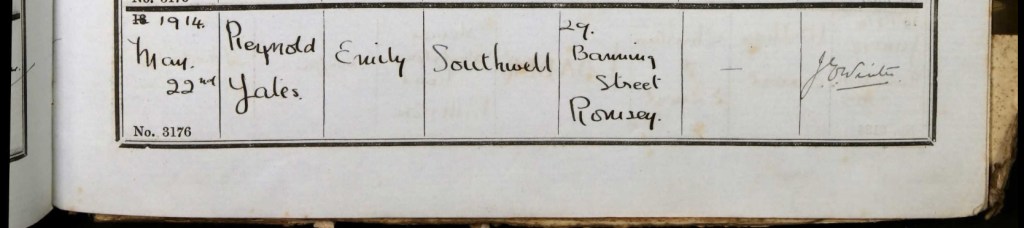 No. 3176
18 1914.
May.
22nd
Reynold
Yates.
Emily
Southwell
29.
Banning
Street
Romsey.
—
No. 3176